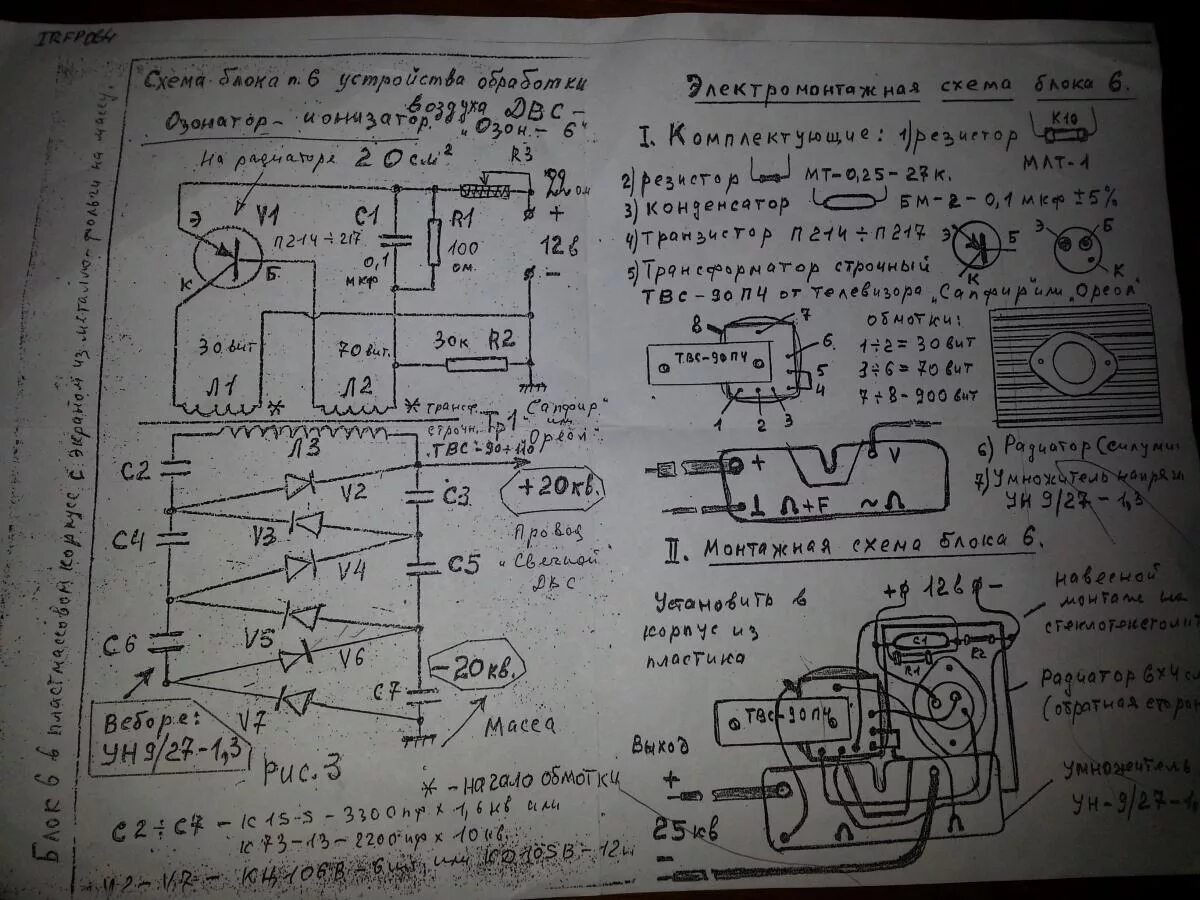 IRFP064
Схема блока п.6 устройства обработки
воздуха ДВС –
Озонатор – ионизатор "Озон – 6"
На радиаторе 20см²
R3
22 ом
Э
V1
П214÷217
К
Б
C1
0,1
мкф
R1
100
ом.
+
12в
–
30 вит
70 вит.
30к R2
Л1
*
Л2
* трансф.
строчн.
Тр1
"Сапфир"
или
"Ореол"
ТВС-90÷110
Л3
C2
V2
C3
+20кв.
V3
C4
V4
C5
Провод
"Свечной"
ДВС
V5
C6
V6
-20кв.
V7
C7
Масса
В сборе:
УН9/27-1,3
Рис.3
* – начало обмотки
C2÷C7 – К15-5 – 3300пф × 1,6кв или
К73-13 – 2200пф × 10кв.
V2-V7 – КЦ106В – 6шт. или КД105В – 12ш
Блок 6 в пластмассовом корпусе с экраном из металло-фольги на массу.
Электромонтажная схема блока 6.
I. Комплектующие: 1) резистор
К10
МЛТ-1
2) резистор МТ-0,25-27к.
3) конденсатор БМ-2-0,1 мкф ±5%
4) транзистор П214÷П217
Э Б
К
Э Б
К
5) Трансформатор строчный
ТВС-90П4 от телевизора "Сапфир" или "Ореол"
8
7
6.
5
4
ТВС-90П4
1 2 3
обмотки:
1÷2 = 30 вит
3÷6 = 70 вит
7÷8 - 900 вит
+
V
⊥ Ω+F ~Ω
6) Радиатор (силуми
7) Умножитель напряж
УН 9/27-1,3
II. Монтажная схема блока 6.
Установить в
корпус из
пластика
+ 12в –
навесной
монтаж на
стеклотекстолит
C1
R1
R2
Радиатор 6×4 с
(обратная сторон
ТВС-90П4
Выход
+
25кв
–
Умножитель
УН-9/27-1,